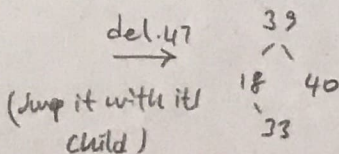 del.47
(Swap it with its
child)
39
18 40
33